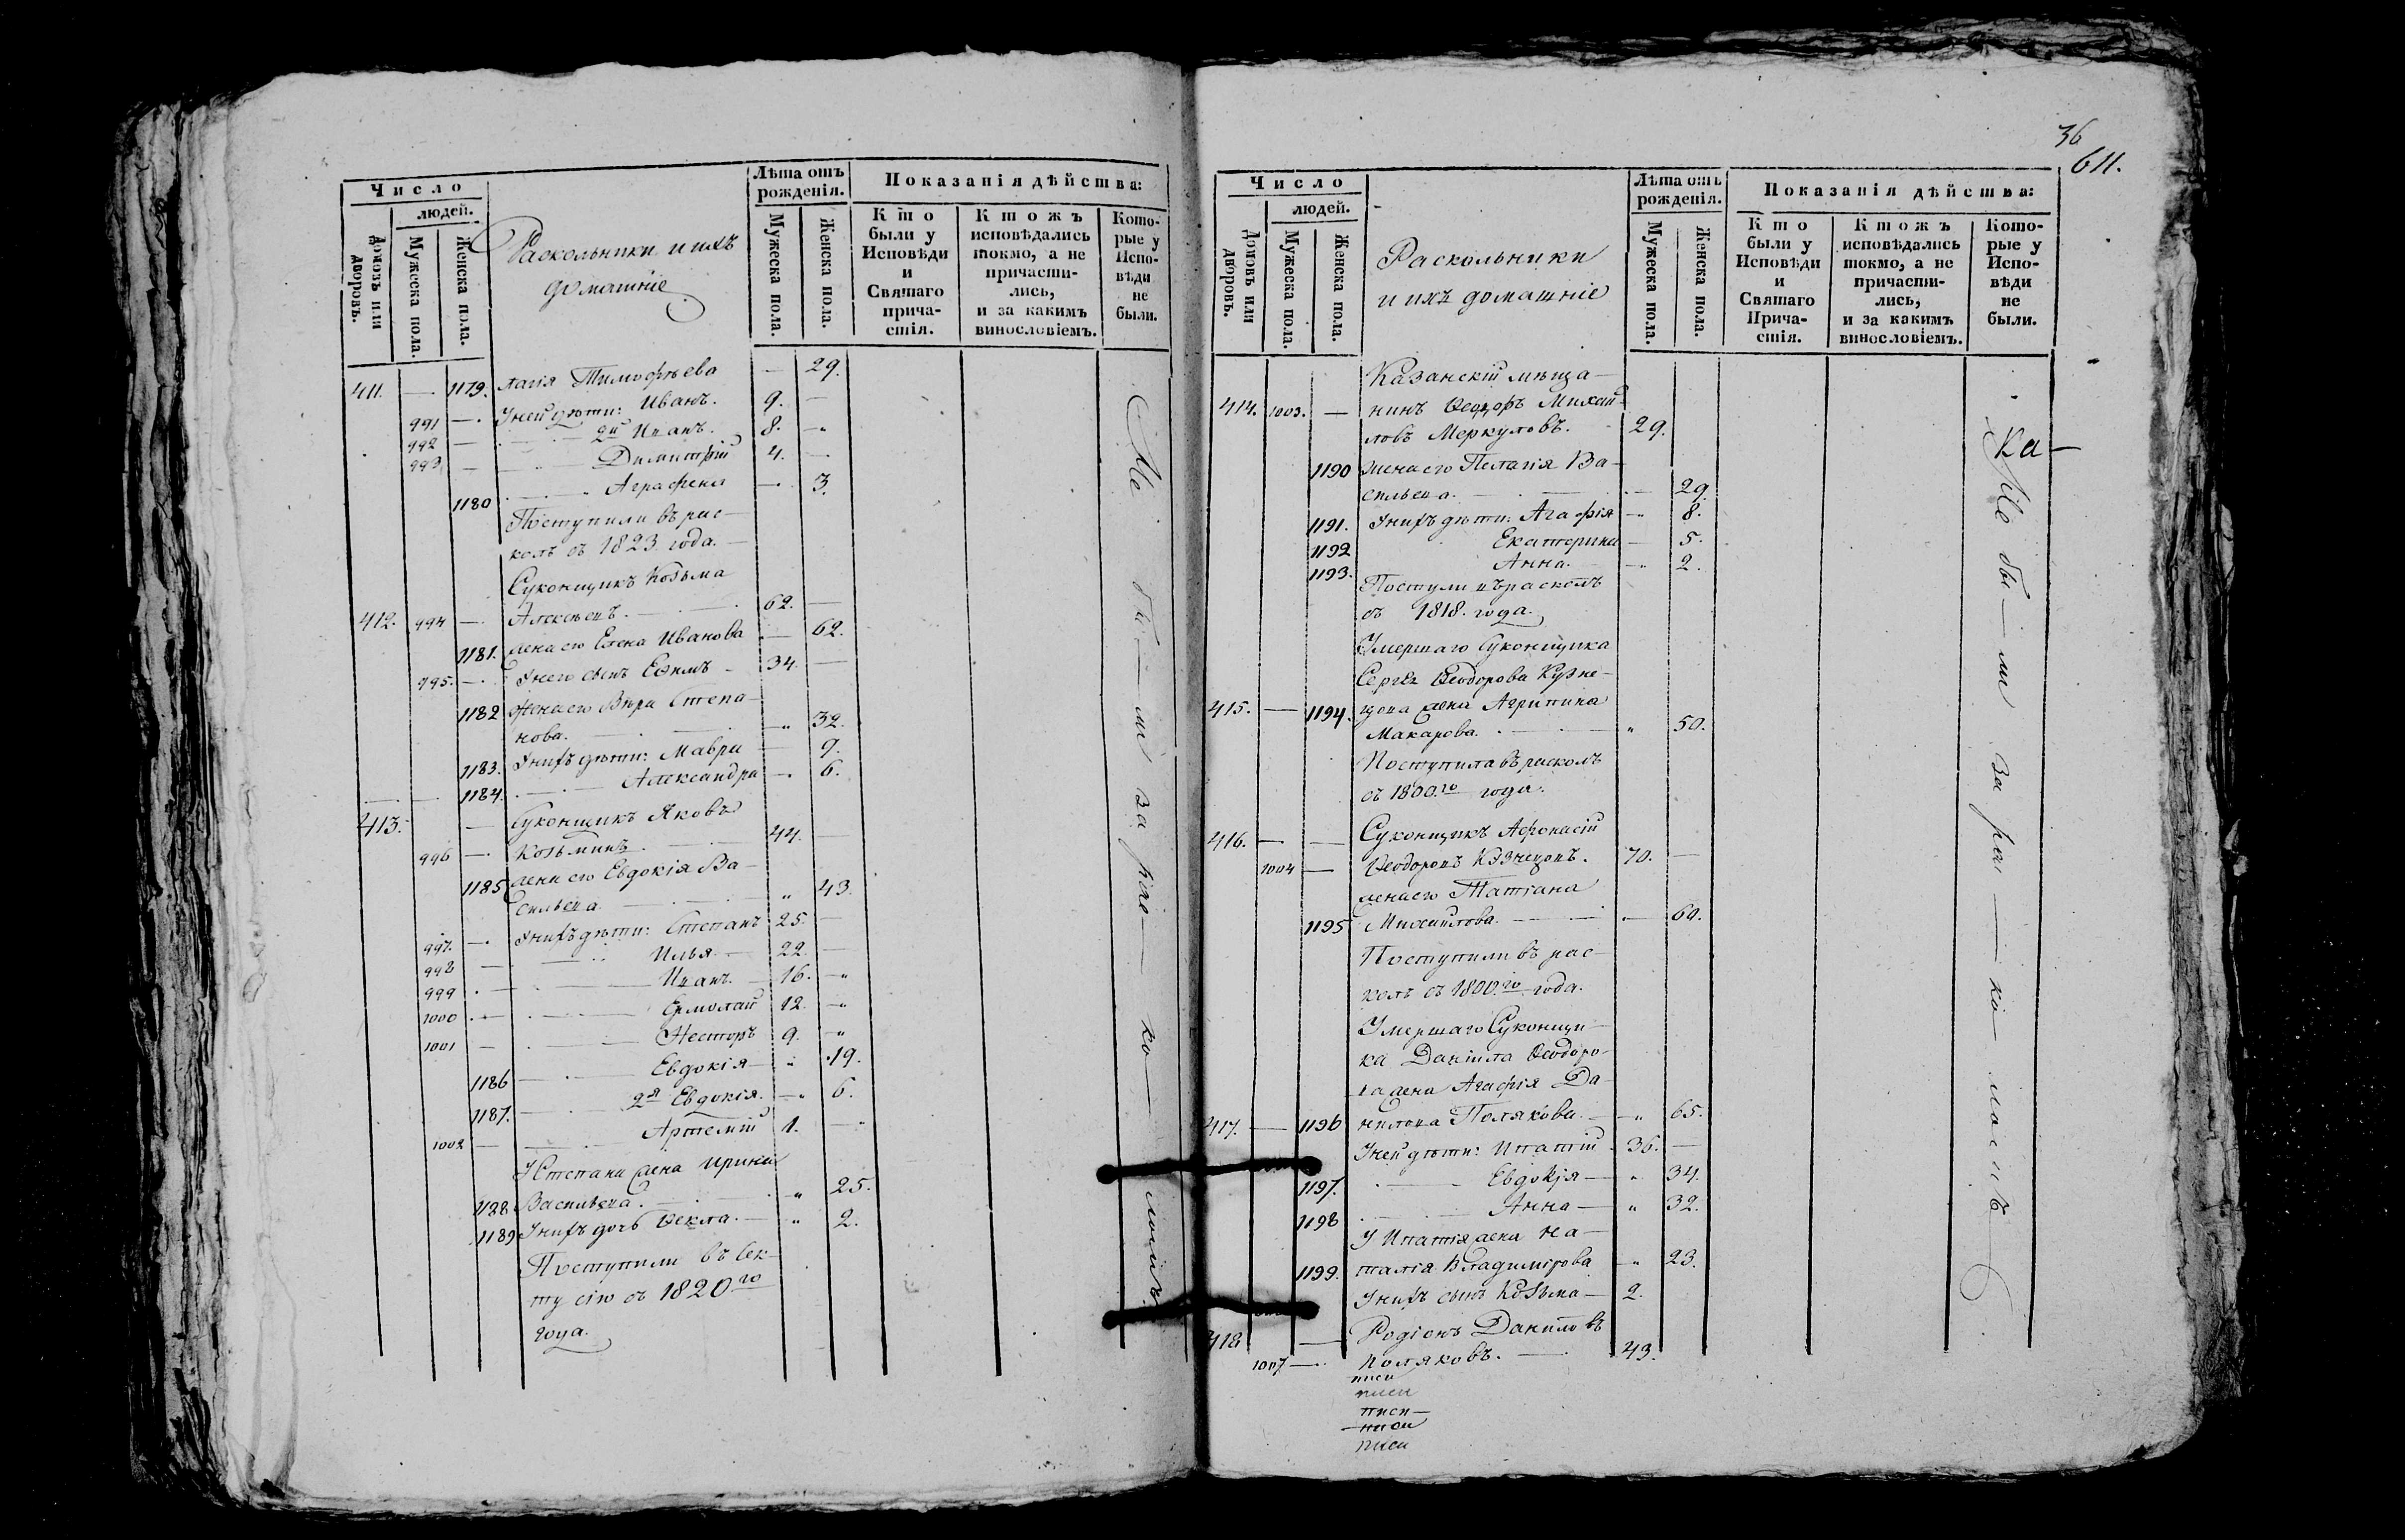 Число
людей.
Домовъ или дворовъ.
Мужеска пола.
Женска пола.
Раскольники и ихъ
домашніе
Лѣта отъ
рожденія.
Мужеска пола.
Женска пола.
Показанія дѣйства:
Кто
были у
Исповѣди
и
Святаго
прича-
стія.
Ктожъ
исповѣдались
токмо, а не
причасти-
лись,
и за какимъ
винословіемъ.
Кото-
рые у
Испо-
вѣди
не
были.
411. — 1179. лагія Тимофѣева — 29.
991 — У ней дѣти: Иванъ. 9. —
992 — 2й Иванъ. 8. —
993 — Димитрій 4. —
1180 Аграфена — 3.
Поступили въ рас-
колъ съ 1823 года. —
Суконщикъ Козьма
412. 994 — Алексѣевъ. 62. —
1181. жена его Елена Иванова — 62.
995. — У него сынъ Ефимъ 34. —
1182 Жена его Вѣра Степа-
нова. „ 32.
1183. У нихъ дѣти: Мавра — 9.
1184. Александра — 6.
413. — Суконщикъ Яковъ
996 — Козьминъ. 44. —
1185 жена его Евдокія Ва-
сильева. „ 43.
997. — У нихъ дѣти: Степанъ 25. —
998 — Илья. 22. —
999 — Иванъ. 16. —
1000 — Ермолай 12. —
1001 — Несторъ 9. „
1186 Евдокія — „ 19.
1187. 2я Евдокія. — 6.
1002 — Артемій 1. —
У Степана жена Ирина
1188 Васильева. „ 25.
1189 У нихъ дочь Ѳекла. — „ 2.
Поступили въ сек-
ту сію съ 1820го
года.
Не бы — ли за рас — ко — ломъ
36
611.
Число
людей.
Домовъ или дворовъ.
Мужеска пола.
Женска пола.
Раскольники
и ихъ домашніе
Лѣта отъ
рожденія.
Мужеска пола.
Женска пола.
Показанія дѣйства:
Кто
были у
Исповѣди
и
Святаго
Прича-
стія.
Ктожъ
исповѣдались
токмо, а не
причасти-
лись,
и за какимъ
винословіемъ.
Кото-
рые у
Испо-
вѣди
не
были.
Казанскій мѣща-
414. 1003. — нинъ Ѳеодоръ Михай-
ловъ Меркуловъ. 29.
1190 жена его Пелагія Ва-
сильева. — 29.
1191. У нихъ дѣти: Агафія — 8.
1192 Екатерина — 5.
1193. Анна. — 2.
Поступили въ расколъ
съ 1818. года.
Умершаго Суконщика
Сергѣя Ѳеодорова Кузне-
415. — 1194. цова жена Агрипина
Макарова. „ 50.
Поступила въ расколъ
съ 1800.го года.
416. — — Суконщикъ Афонасій
1004 — Ѳеодоровъ Кузнецовъ. 70. —
жена его Татіана
1195 Михайлова. — 60.
Поступили въ рас-
колъ съ 1800.го года.
Умершаго Суконщи-
ка Даніила Ѳеодоро-
ва жена Агафія Да-
417. — 1196 нилова Полякова. — „ 65.
У ней дѣти: Ипатій 36. —
1197. Евдокія — „ 34.
1198 Анна — „ 32.
У Ипатія жена На-
1199. талія Владимірова — „ 23.
У нихъ сынъ Козьма — 2.
418 — Родіонъ Даниловъ
1007 — Поляковъ. — 43.
Ка —
Не бы — ли за рас — ко — ломъ